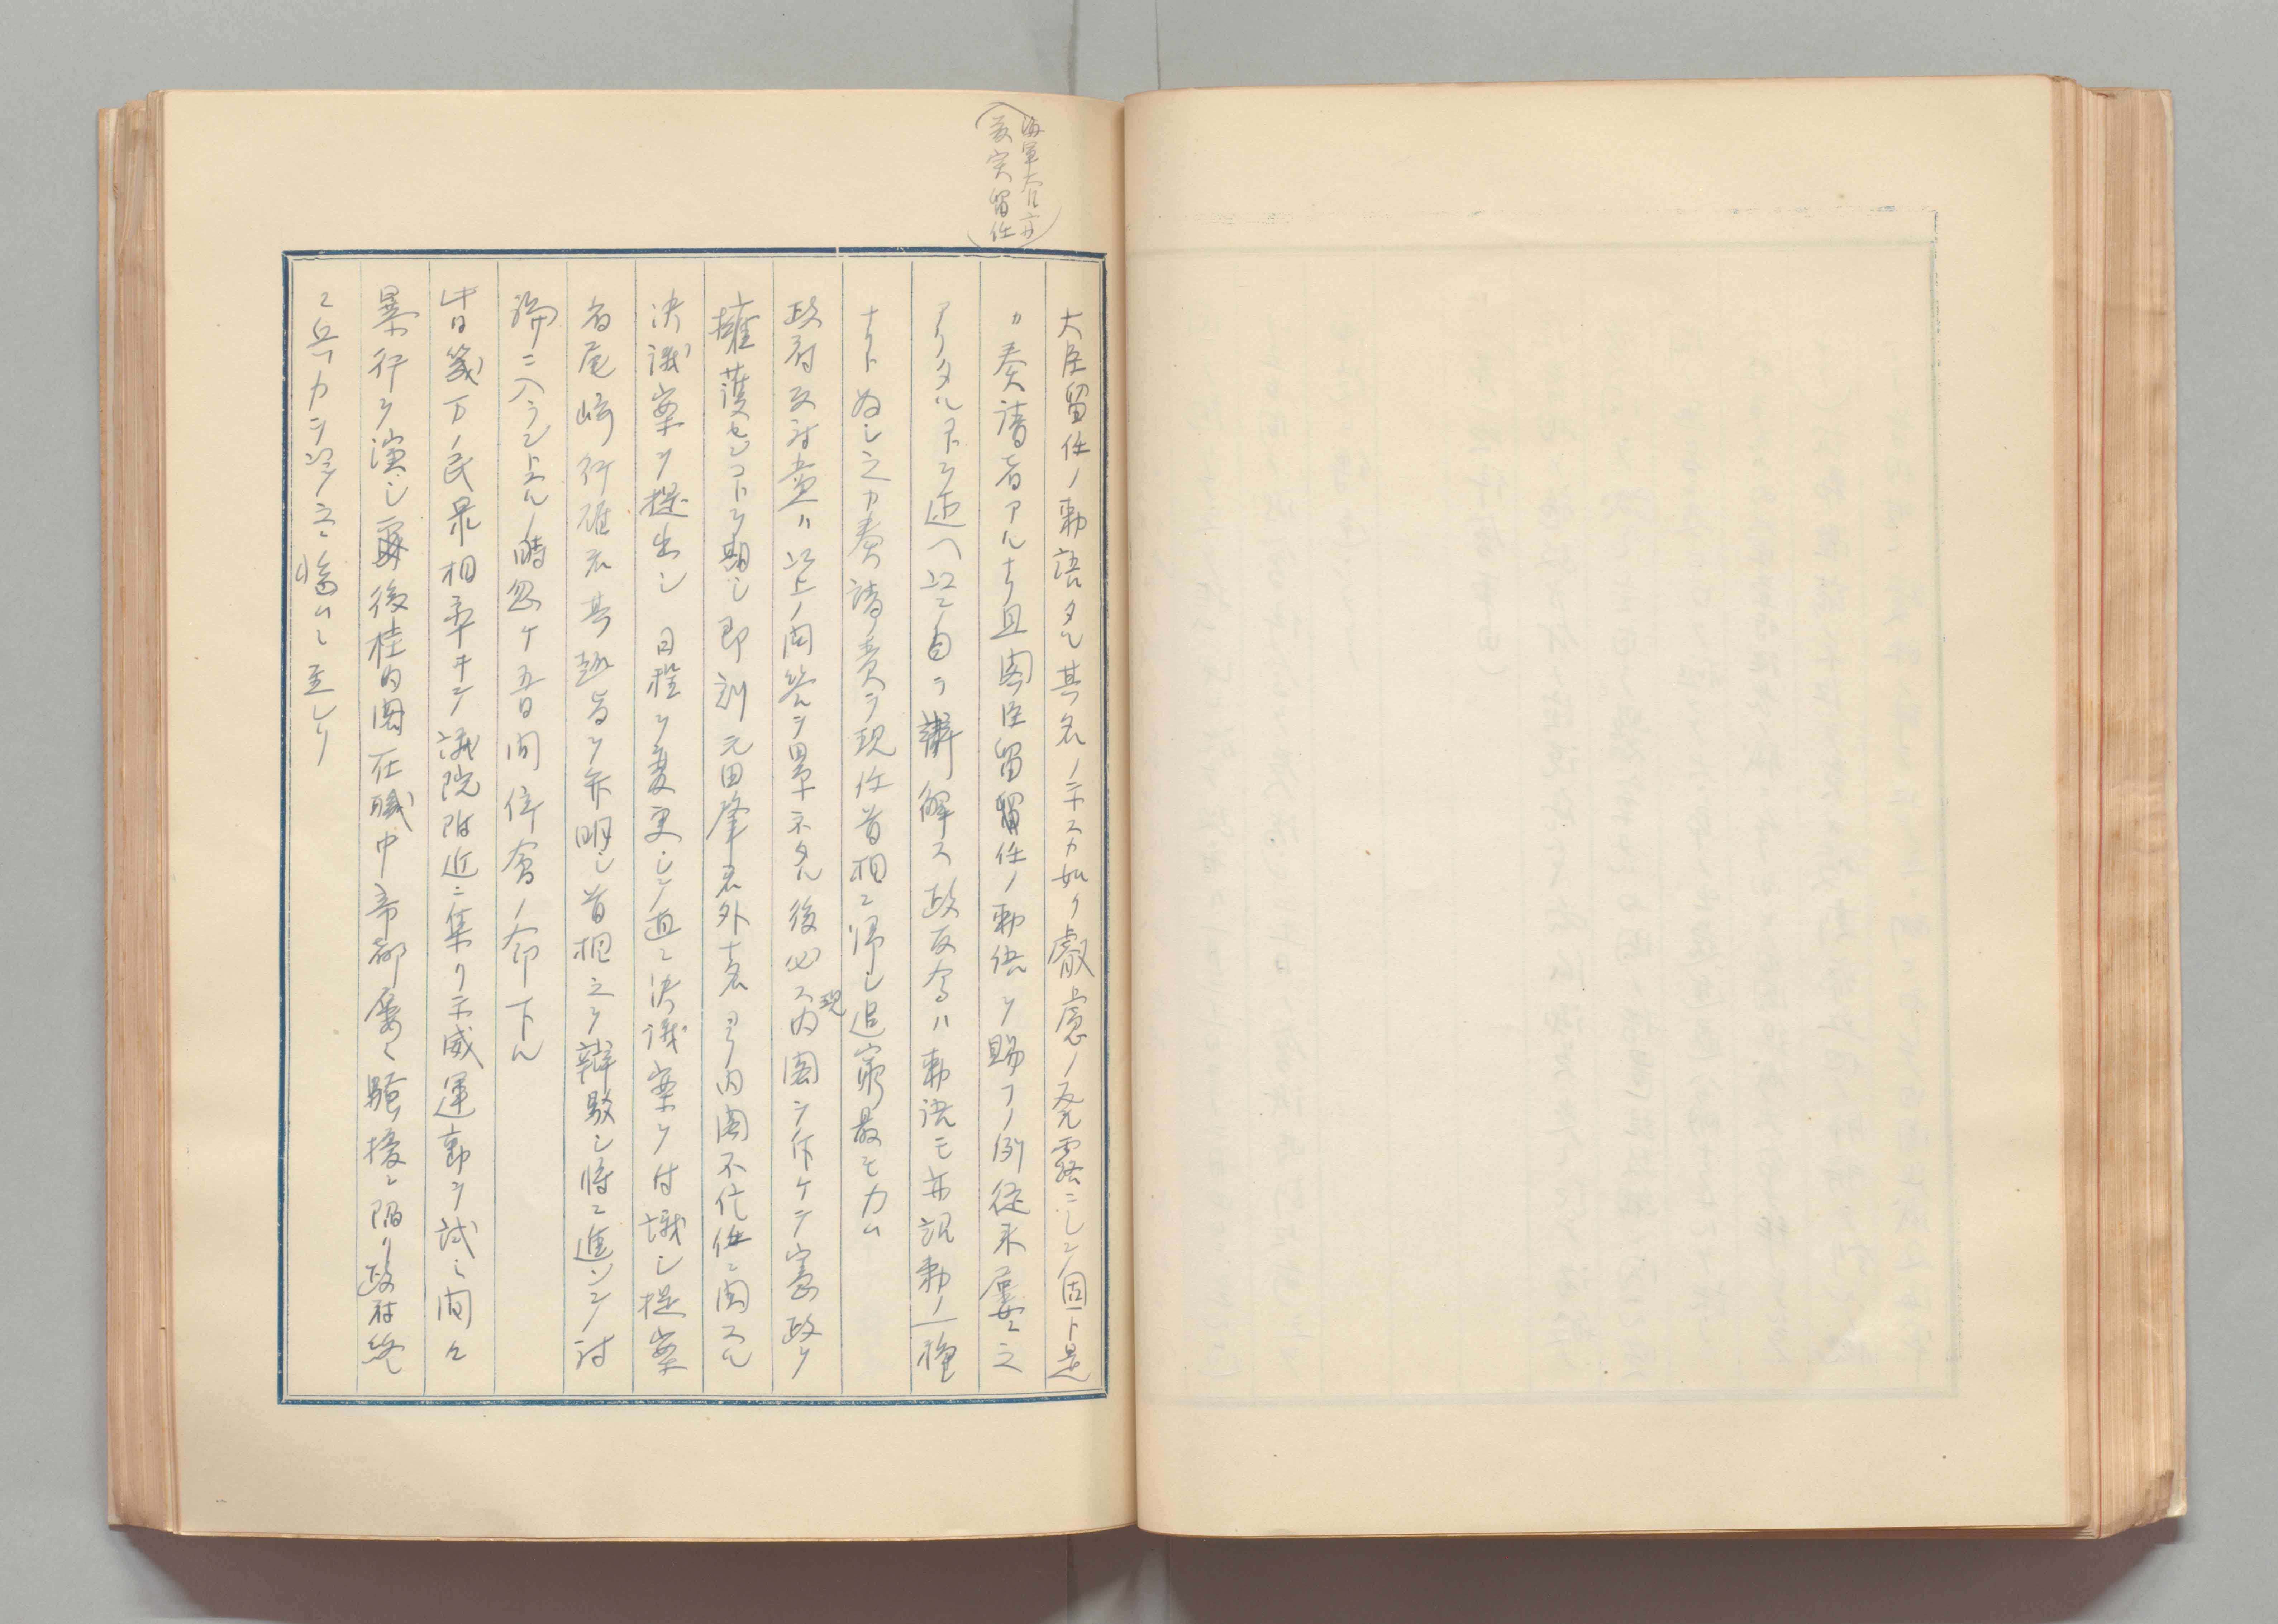 海軍大臣亦
妥実留任
大臣留任ノ勅語タル其名ノ示スカ如ク叡慮ノ発露ニシテ固ト是
カ奏請者アルナク且閣臣留任ノ勅語ヲ賜フノ例従来屡々之
アリタルコトヲ述ヘ以テ自ラ辯解ス政友会ハ勅語モ亦詔勅ノ一種
ナリト為シ之カ奏請ノ責ヲ現任首相ニ帰シ追窮最モ力ム
政府反対党ハ以上ノ問答ヲ畢ネタル後必ス現内閣ヲ斥ケテ憲政ヲ
擁護センコトヲ期シ即刻元田肇君外 ヨリ内閣不信任ニ関スル
決議案ヲ提出シ日程ヲ変更シテ直ニ決議案ヲ付議シ提案
者尾崎行雄君其趣旨ヲ弁明シ首相之ヲ辯駁シ将ニ進ンテ討
論ニ入ラントスルノ時忽ケ五日間停会ノ命下ル
此日幾万ノ民衆相率ヰテ議院附近ニ集リ示威運動ヲ試ミ間々
暴行ヲ演シ爾後桂内閣在職中帝都屡々騒擾ニ陥リ政府終
ニ兵力ヲ以テ之ニ臨ムニ至レリ